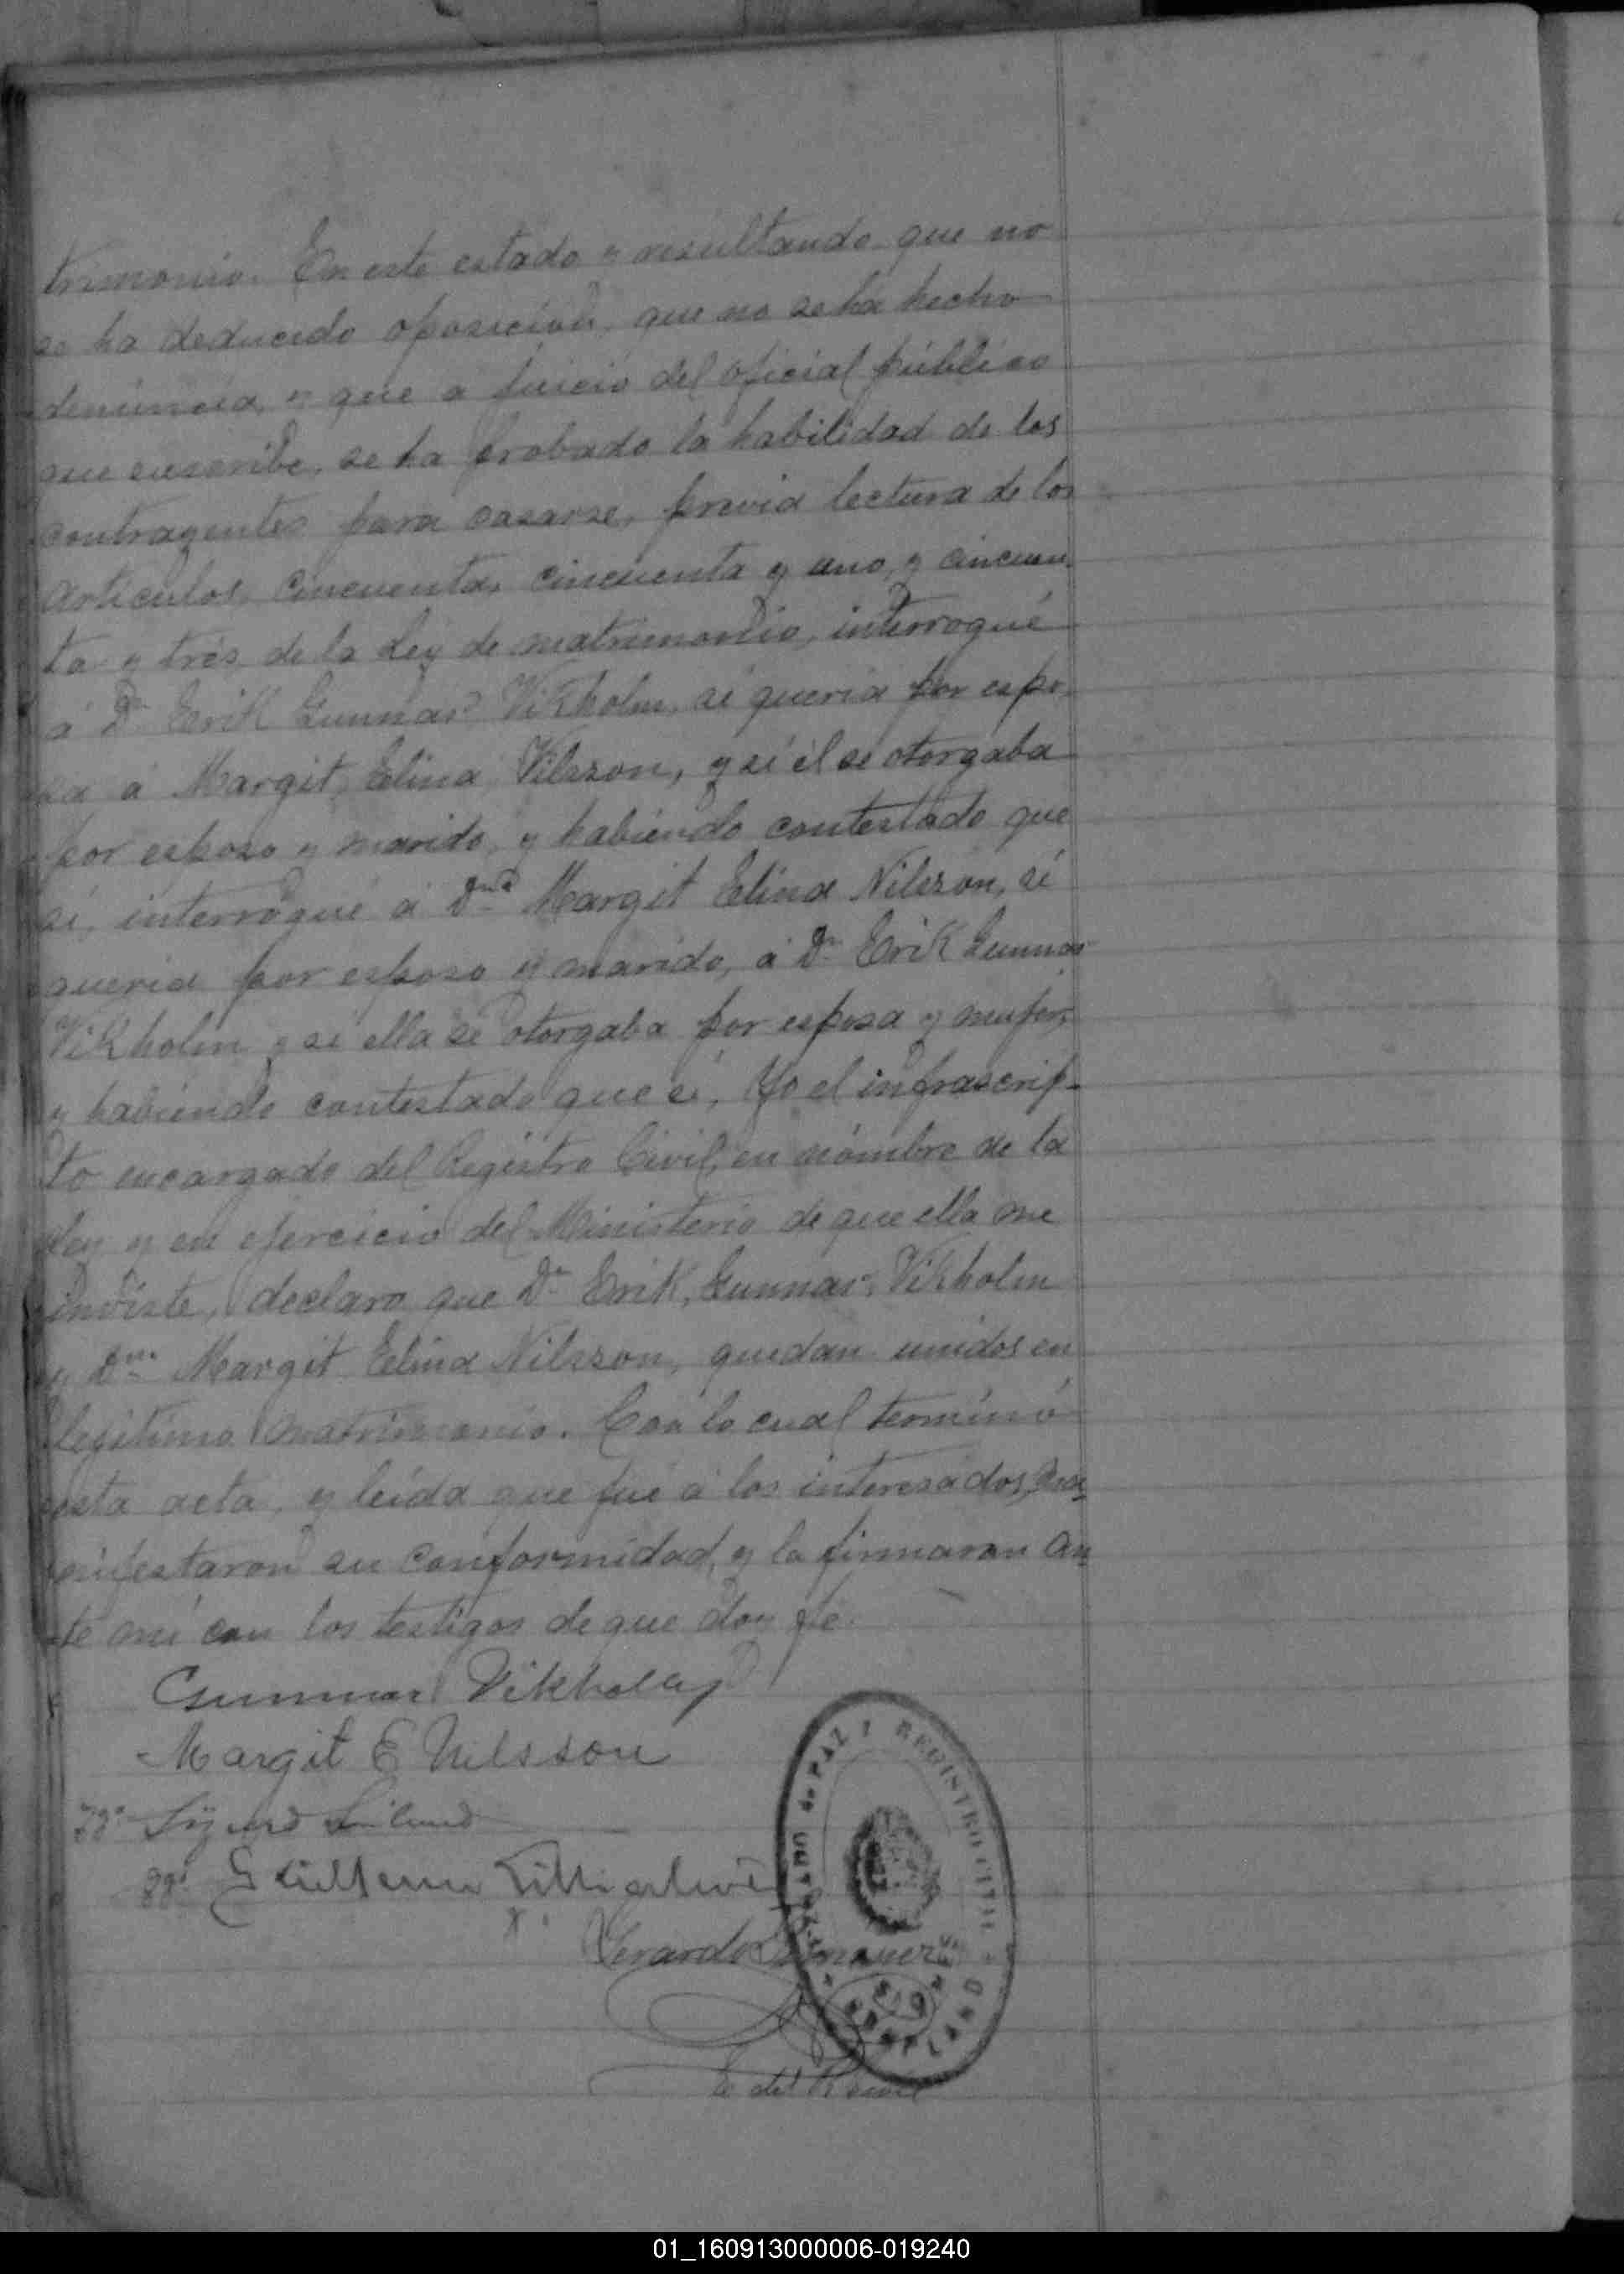 trimonio. En este estado y resultando que no
se ha deducido oposición, que no se ha hecho
denúncia, y que a juicio del oficial público
que suscribe, se ha probado la habilidad de los
contrayentes para casarse, previa lectura de los
artículos, cincuenta, cincuenta y uno, y cincuen-
ta y trés, de la Ley de matrimonio, interrogué
á Dn Erik Gunnar Vikholm, si queria por espo-
sa á Margit Elina Nilsson, y si él se otorgaba
por esposo y marido, y habiendo contestado que
sí, interrogué á Dña Margit Elina Nilsson, si
queria por esposo y marido, á Dn Erik Gunnar
Vikholm y si ella se otorgaba por esposa y mujer,
y habiendo contestado que sí, Yo el infrascrip-
to encargado del Registro Civil, en nómbre de la
Ley y en ejercicio del Ministerio de que ella me
inviste, declaro que Dn Erik, Gunnar, Vikholm
y Dña Margit Elina Nilsson, quedan unidos en
legítimo matrimonio. Con lo cual terminó
esta acta, y leída que fué á los interesados, ma-
nifestaron su conformidad, y la firmaron an-
te mí con los testigos de que doy fe.
Gunnar Vikholm
Margit E Nilsson
tgo Sigurd
tgo Guillermo
Gerardo
E. del R. Civil
de PAZ I REGISTRO CIVIL
01_160913000006-019240